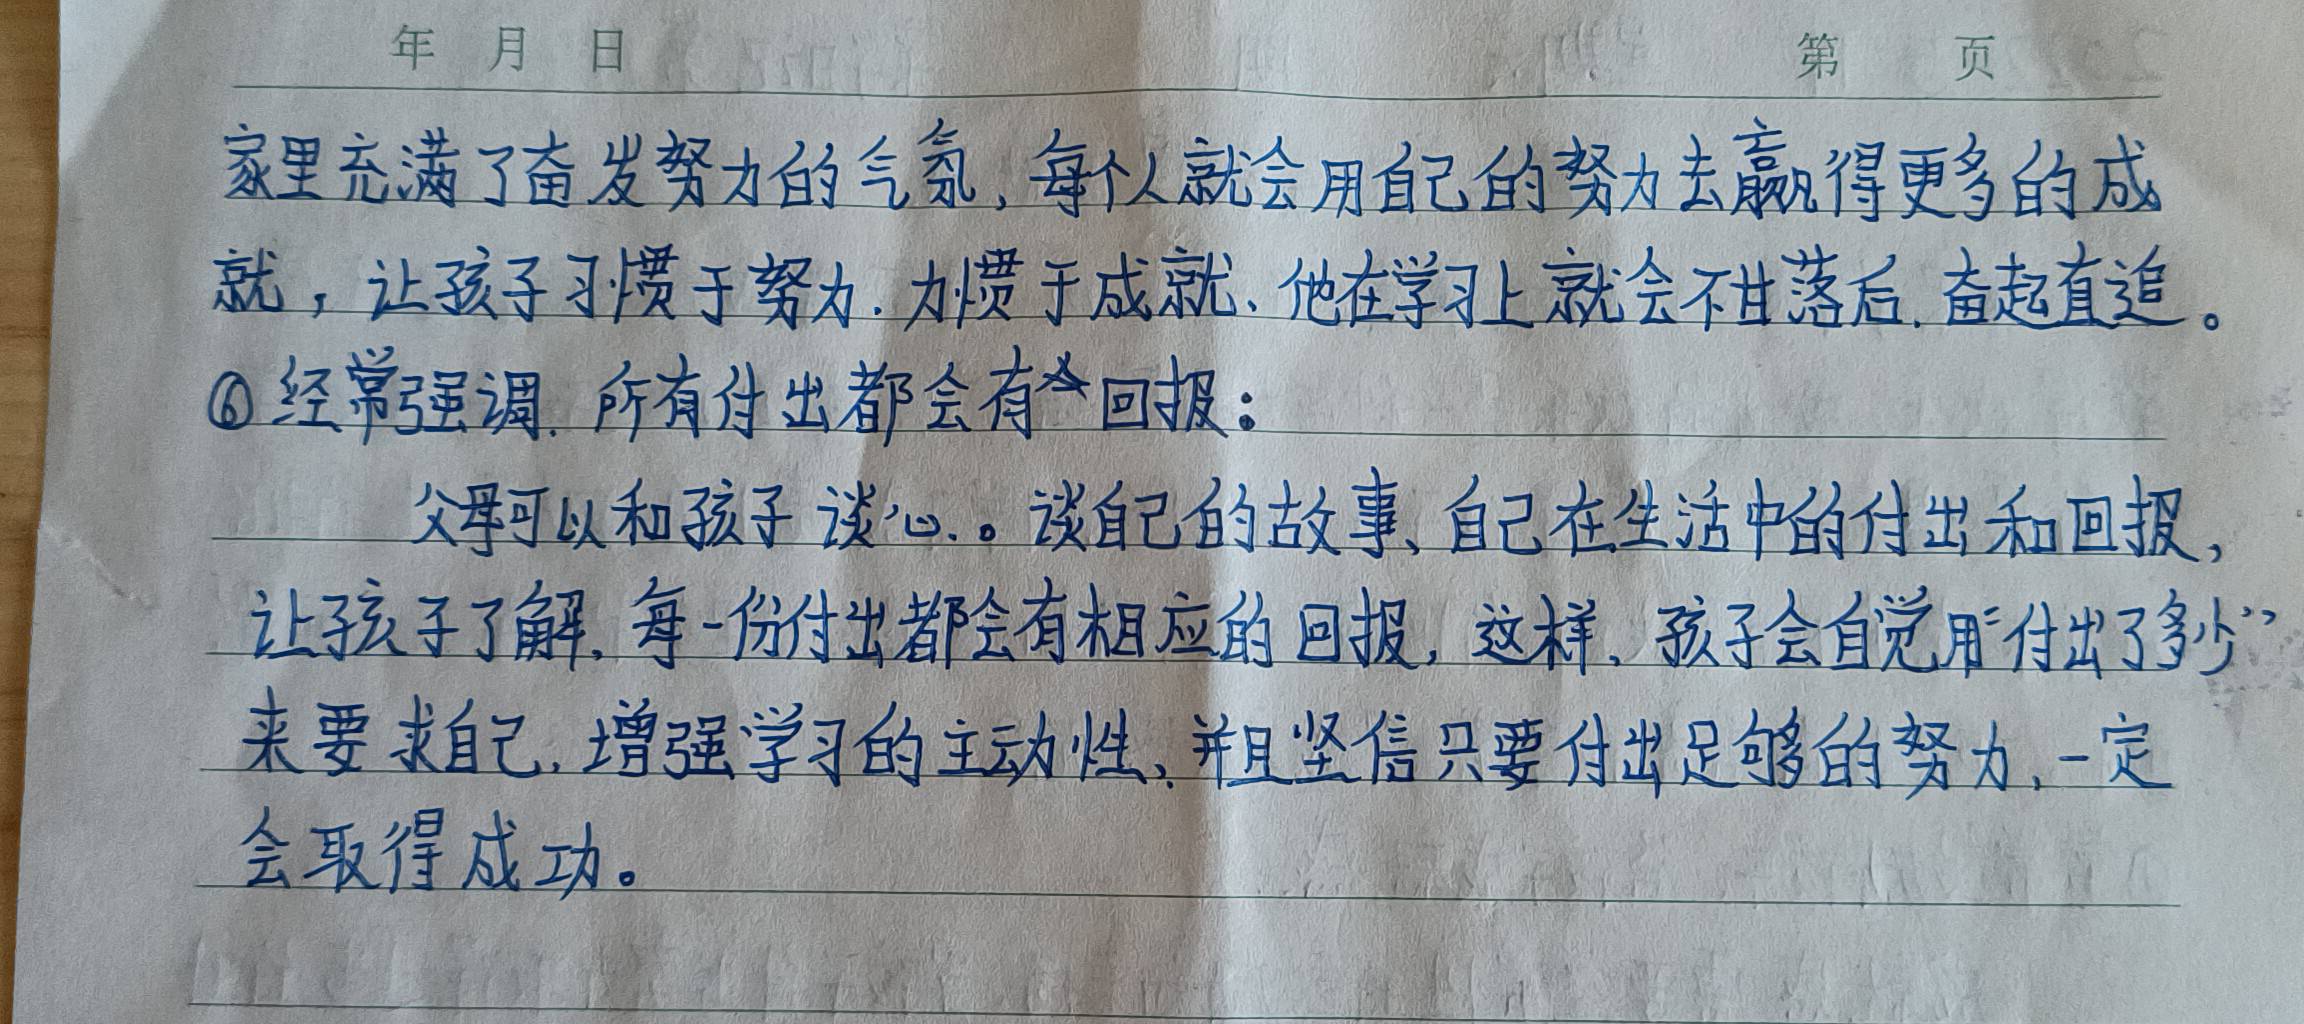 年 月 日 第 页
家里充满了奋发努力的气氛,每个人就会用自己的努力去赢得更多的成
就,让孩子习惯于努力.力惯于成就、他在学习上就会不甘落后.奋起直追。
⑥经常强调.所有付出都会有回报:
父母可以和孩子谈心.。谈自己的故事、自己在生活中的付出和回报,
让孩子了解.每一份付出都会有相应的回报,这样、孩子会自觉用“付出了多少”
来要求自己.增强学习的主动性、并且坚信只要付出足够的努力,一定
会取得成功。